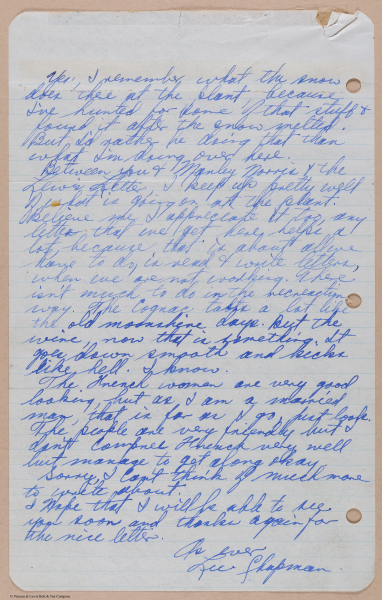 Yes, I remember what the snow
does there at the plant, because
I've hunted for some of that stuff &
found it after the snow melted.
But I'd rather be doing that than
what I'm doing over here.
Between you & Manley Morris & the
News Letter I keep up pretty well
what is going on at the plant.
Believe me I appreciate it too, any
letter that we get here, helps a
lot because that is about all we
have to do, is read & write letters,
when we are not working. There
isn't much to do in the recreation
way. The Cognac takes a lot like
the old moonshine days. But the
wine now that is something. It
goes down smooth and kicks
like hell. I know.
The French women are very good
looking, but as I am a married
man, that is far as I go, just look.
The people are very friendly but I
don't French very well
but manage to get along okay
Sorry I can't think of much more
to write about.
I hope that I will be able to see
you soon and thanks again for
the nice letter.
As ever
Lee Chapman.
© Pinson & Lewis Bolt & Nut Company